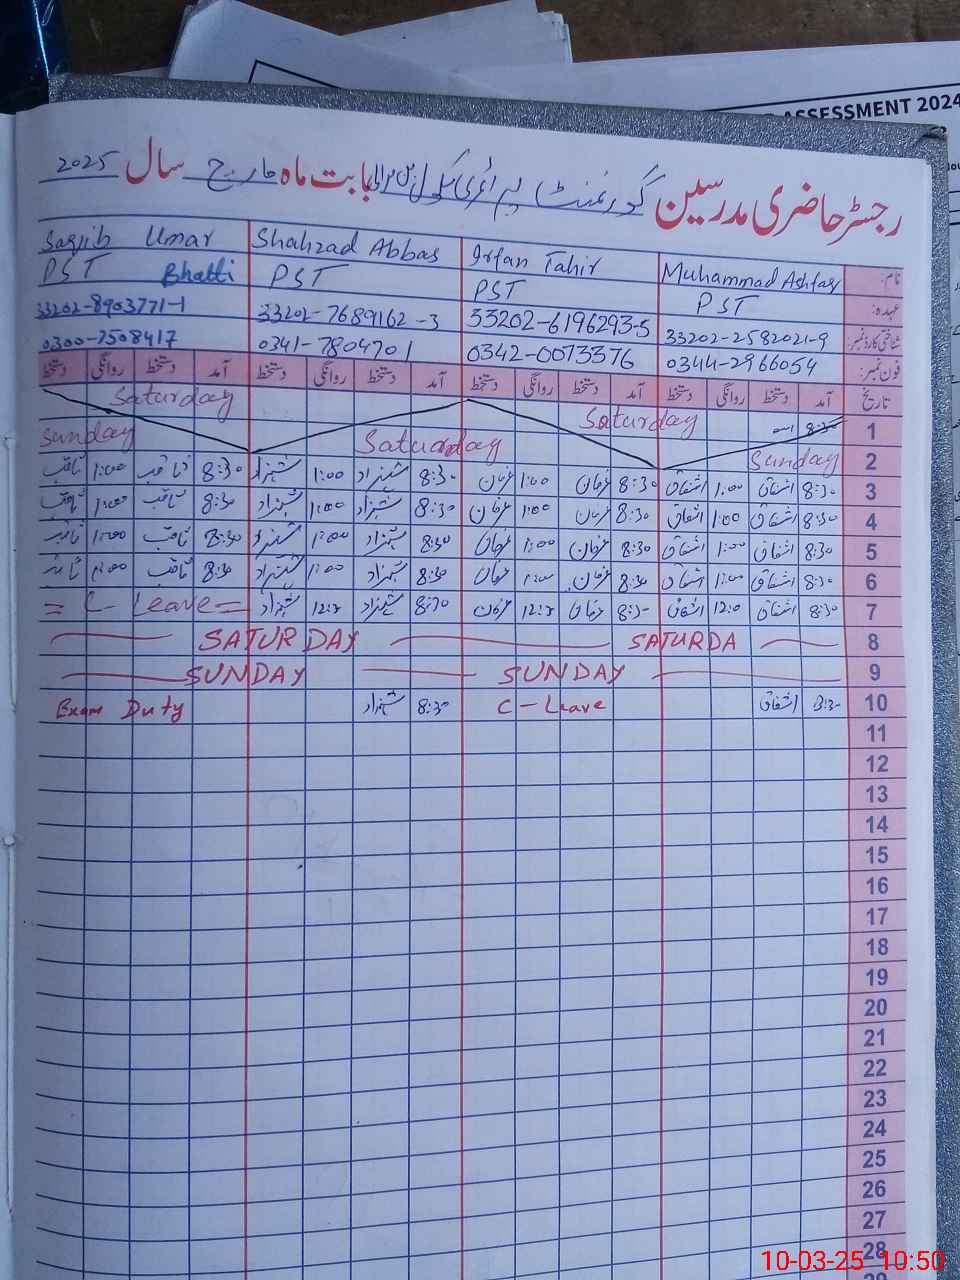 ASSESSMENT 2024
رجسٹر حاضری مدرسین گورنمنٹ پرائمری سکول بابت ماہ مارچ سال 2025
نام: Muhammad Ashfaq Irfan Tahir Shahzad Abbas Saqib Umar Bhatti
عہدہ: PST PST PST PST
شناختی کارڈ نمبر: 33202-2582021-9 33202-6196293-5 33202-7689162-3 33202-8903771-1
فون نمبر: 0344-2966054 0342-0073376 0341-7804701 0300-7508417
تاریخ آمد دستخط روانگی دستخط آمد دستخط روانگی دستخط آمد دستخط روانگی دستخط آمد دستخط روانگی دستخط
1 8:30 Saturday Saturday
2 Sunday Saturday Sunday
3 8:30 اشفاق 1:00 اشفاق 8:30 عرفان 1:00 عرفان 8:30 شہزاد 1:00 شہزاد 8:30 ثاقب 1:00 ثاقب
4 8:30 اشفاق 1:00 اشفاق 8:30 عرفان 1:00 عرفان 8:30 شہزاد 1:00 شہزاد 8:30 ثاقب 1:00 ثاقب
5 8:30 اشفاق 1:00 اشفاق 8:30 عرفان 1:00 عرفان 8:30 شہزاد 1:00 شہزاد 8:30 ثاقب 1:00 ثاقب
6 8:30 اشفاق 1:00 اشفاق 8:30 عرفان 1:00 عرفان 8:30 شہزاد 1:00 شہزاد 8:30 ثاقب 1:00 ثاقب
7 8:30 اشفاق 12:0 اشفاق 8:30 عرفان عرفان 8:30 شہزاد شہزاد = C-Leave =
8 SATURDA SATURDAY
9 SUNDAY SUNDAY
10 8:30 اشفاق C-Leave 8:30 شہزاد Exam Duty
11
12
13
14
15
16
17
18
19
20
21
22
23
24
25
26
27
28
10-03-25 10:50